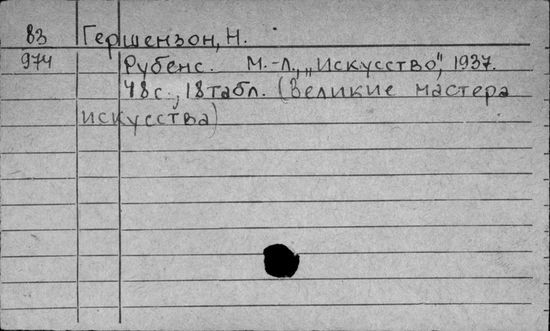 83 Гершензон, Н.
974 Рубенс. М.-Л., „Искусство", 1937.
48 с., 18 табл. (Великие мастера
искусства)